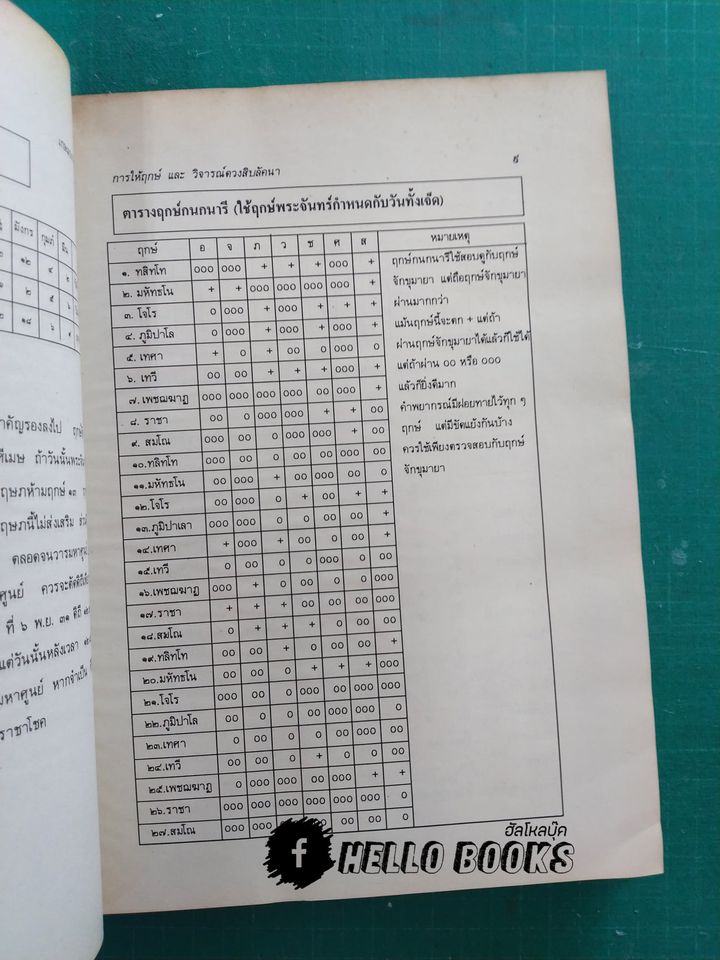 การให้ฤกษ์ และ วิจารณ์ดวงสิบลัคนา
ตารางฤกษ์กนกนารี (ใช้ฤกษ์พระจันทร์กำหนดกับวันทั้งเจ็ด)
ฤกษ์ อ จ ภ ว ช ศ ส หมายเหตุ
๑. ทลิทโท ๐๐๐ ๐๐๐ + + + ๐๐๐ + ฤกษ์กนกนารีใช้สอบดูกับฤกษ์
๒. มหัทธโน + + ๐๐๐ ๐๐๐ ๐๐๐ ๐๐๐ + จักขุมายา แต่ถือฤกษ์จักขุมายา
๓. โจโร ๐ ๐๐๐ + ๐๐๐ + + + ผ่านมากกว่า
๔. ภูมิปาโล ๐ ๐๐๐ + ๐๐๐ + ๐๐๐ + แม้นฤกษ์นี้จะตก + แต่ถ้า
๕. เทศา + ๐ + ๐๐ ๐ ๐๐๐ ๐ ผ่านฤกษ์จักขุมายาได้แล้วก็ใช้ได้
๖. เทวี ๐๐ ๐๐ + + + ๐๐๐ + แต่ถ้าผ่าน ๐๐ หรือ ๐๐๐
๗. เพชฌฆาฏ ๐๐๐ ๐๐๐ ๐๐๐ ๐๐๐ ๐๐ ๐๐๐ + แล้วก็ยิ่งดีมาก
๘. ราชา ๐๐ ๐ ๐๐๐ ๐๐๐ + + ๐๐ คำพยากรณ์มีฝอยทายไว้ทุก ๆ
๙. สมโณ ๐๐๐ ๐๐ ๐ ๐๐๐ ๐๐๐ + ๐๐ ฤกษ์ แต่มีขัดแย้งกันบ้าง
๑๐.ทลิทโท ๐๐๐ ๐๐ ๐ ๐๐ ๐๐ ๐๐๐ ๐๐ ควรใช้เพียงตรวจสอบกับฤกษ์
๑๑.มหัทธโน ๐๐ ๐๐๐ + ๐๐ ๐๐๐ ๐๐ ๐ จักขุมายา
๑๒.โจโร ๐๐ ๐๐๐ ๐ + ๐๐ + +
๑๓.ภูมิปาเลา ๐๐๐ ๐๐๐ ๐ ๐ ๐๐ ๐๐ +
๑๔.เทศา + ๐๐๐ + ๐๐ ๐ ๐๐ +
๑๕.เทวี ๐ ๐๐ ๐๐ ๐ ๐๐๐ ๐ ๐๐
๑๖.เพชฌฆาฏ ๐๐๐ + ๐ ๐๐ ๐ ๐ ๐๐๐
๑๗.ราชา + + + ๐๐ ๐๐ ๐๐ ๐๐๐
๑๘.สมโณ ๐ + + + ๐ ๐๐ ๐๐
๑๙.ทลิทโท ๐๐ ๐๐ + ๐ ๐๐ ๐๐ +
๒๐.มหัทธโน ๐๐ ๐๐ ๐ + + + ๐๐๐
๒๑.โจโร ๐๐๐ ๐๐ ๐ ๐๐๐ ๐๐ ๐๐๐ ๐๐๐
๒๒.ภูมิปาโล ๐๐ ๐ ๐๐ ๐๐๐ ๐๐๐ ๐๐๐ ๐
๒๓.เทศา ๐ ๐๐ ๐ ๐๐ ๐๐๐ ๐๐๐ ๐๐
๒๔.เทวี ๐๐ ๐๐ ๐ + ๐ ๐ ๐๐
๒๕.เพชฌฆาฏ ๐ ๐๐๐ ๐๐๐ ๐๐ ๐๐๐ + +
๒๖.ราชา ๐๐๐ ๐๐๐ ๐๐๐ ๐๐๐ ๐๐๐ ๐๐๐ ๐
๒๗.สมโณ ๐๐๐ ๐๐๐ ๐๐ ๐๐ ๐
มังกร กุมภ์ มีน
๑๒ ๔ ๒
๒ ๕ ๖
๑๘ ๖
ำคัญรองลงไป
ีเมษ ถ้าวันนั้นพระจัน
ฤษภห้ามฤกษ์ ๑๓
ฤษภนี้ไม่ส่งเสริม
ตลอดจนวารมหาศูน
ศูนย์ ควรจะตัดดิถี
ที่ ๖ พ.ย. ๓๑ ดิถี
แต่วันนั้นหลังเวลา
มหาศูนย์ หากจำเป็น
ราชาโชค
ฮัลโหลบุ๊ค
f HELLO BOOKS